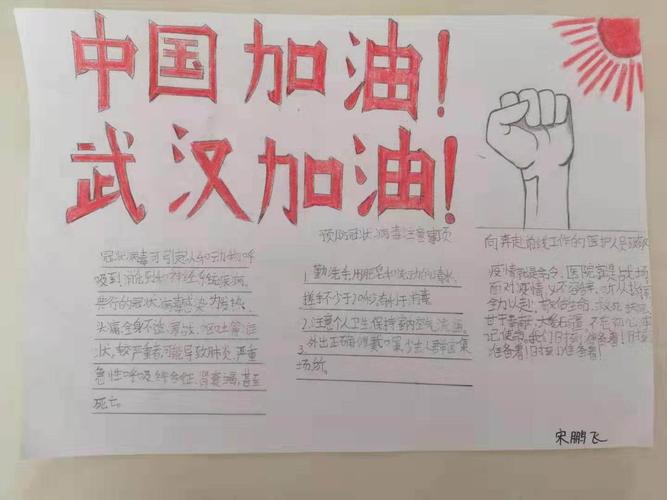 中国加油！
武汉加油！
冠状病毒可引起人和动物呼
吸到、消化和神经系统疾病,
典行的冠状病毒感染为发热、
头痛全身不适、寒战、呕吐等症
状,较严重者可能导致肺炎,严重
急性呼吸综合征,肾衰竭,甚至
死亡。
预防冠状病毒注意事项
1.勤洗手用肥皂和流动的
搓手不少于20秒
2.注意个人卫生保持室内空气流通。
3.外出正确佩戴口罩,少去人群密集
场所。
向奔赴前线工作的医护人员致敬
疫情就是命令,医院就是战场
面对疫情,义不容辞,听从指挥
全力以赴,
甘于奉献,大爱无疆,不忘初心,牢
记使命,我们时刻准备着!时刻
准备着!时刻准备着!
宋鹏飞